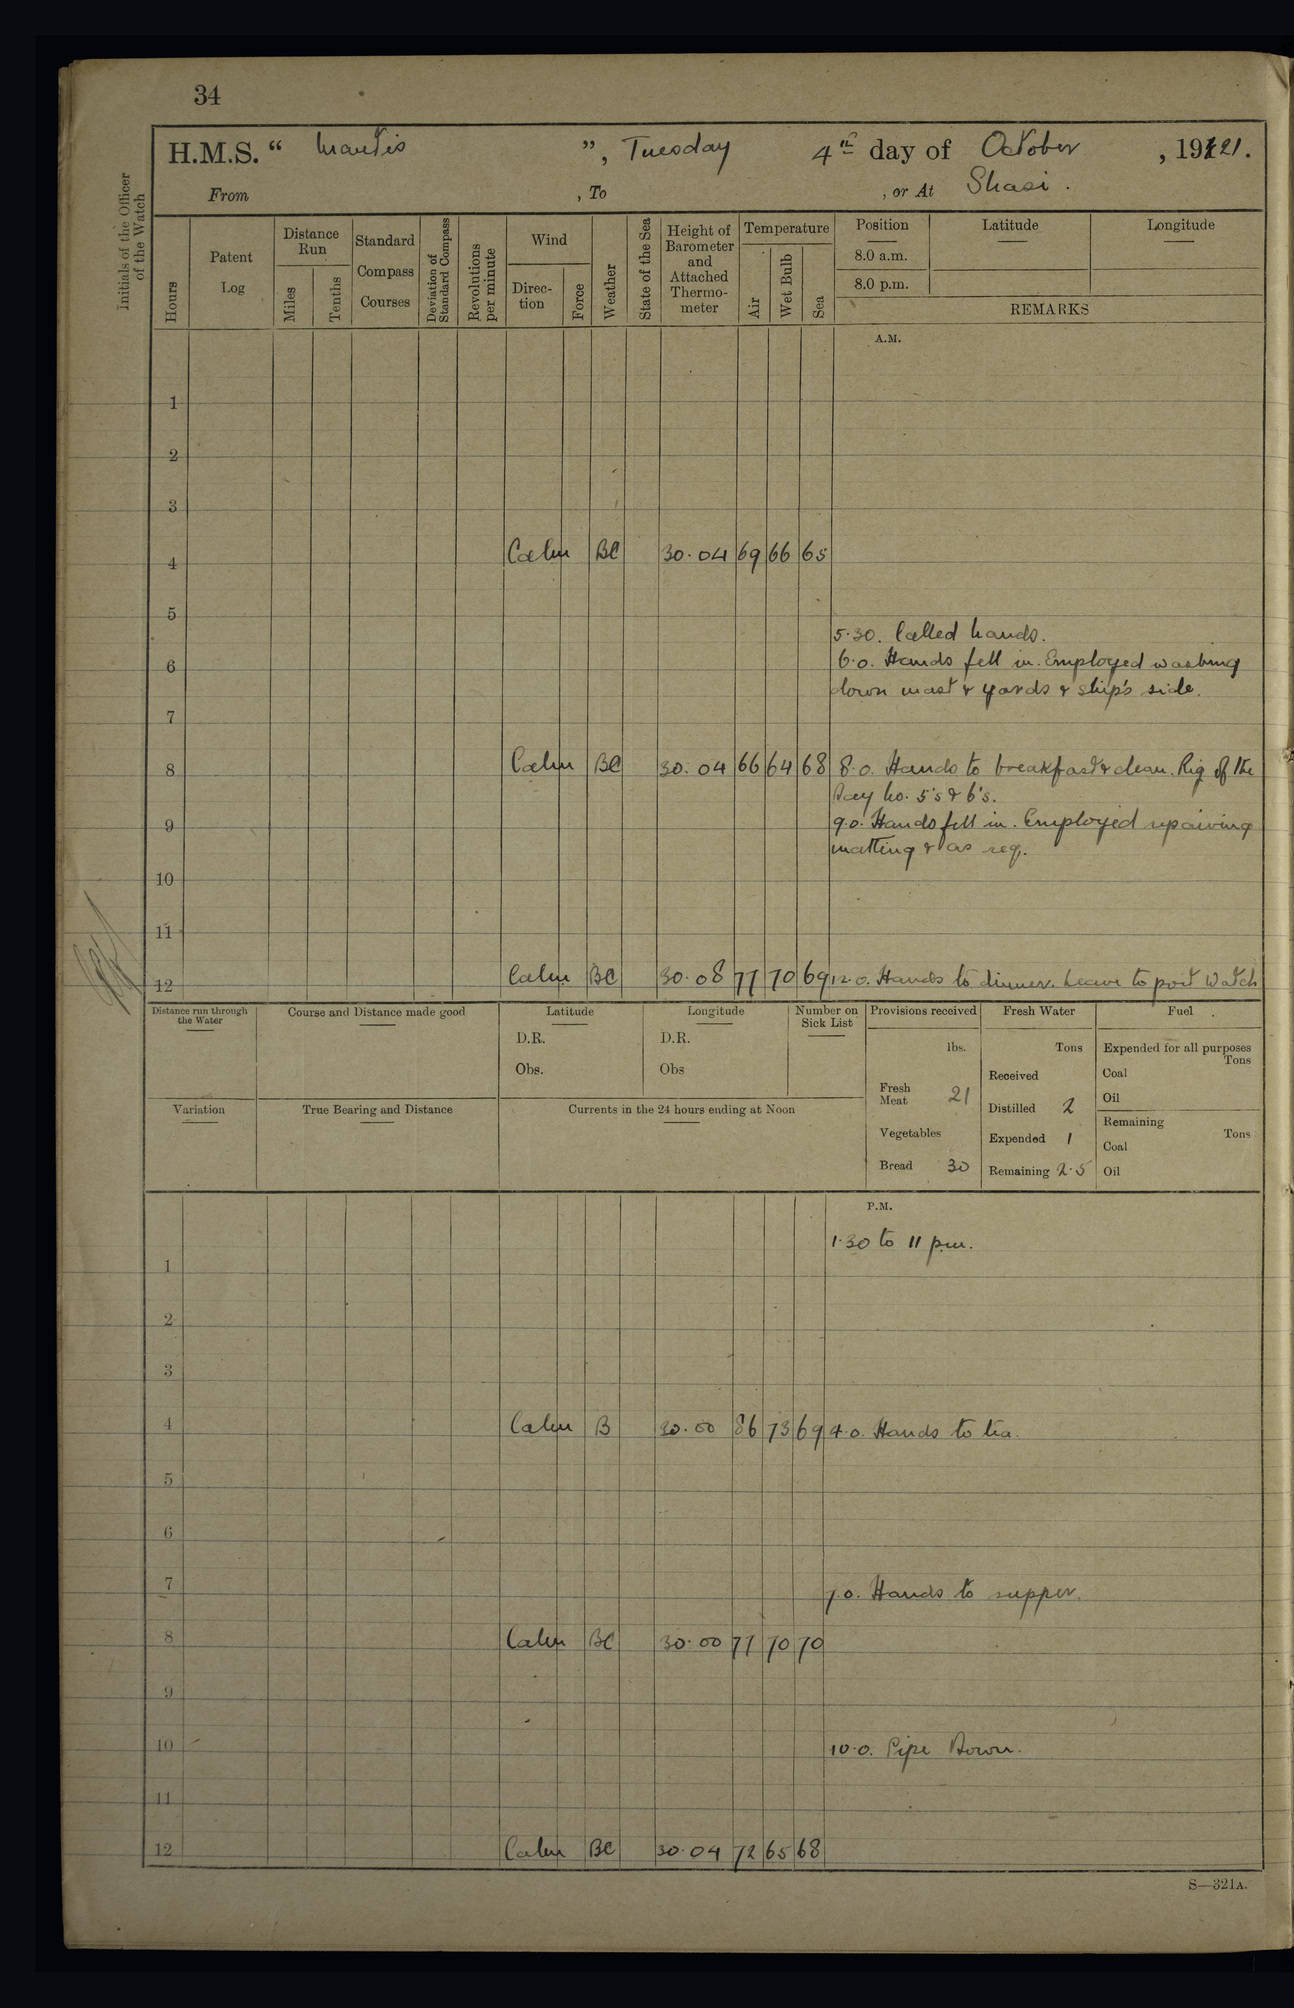 34
H.M.S. “ Mantis ”, Tuesday 4th day of October, 1921.
From , To , or At Shasi.
Initials of the Officer of the Watch
Hours
Patent Log
Distance Run
Miles
Tenths
Standard Compass Courses
Deviation of Standard Compass
Revolutions per minute
Wind
Direction
Force
Weather
State of the Sea
Height of Barometer and Attached Thermometer
Temperature
Air
Wet Bulb
Sea
Position
8.0 a.m.
8.0 p.m.
Latitude
Longitude
REMARKS
A.M.
1
2
3
4 Calm BC 30.04 69 66 65
5
5.30. Called hands.
6.0. Hands fell in. Employed washing
6
down mast & yards & ship's side.
7
8 Calm BC 30.04 66 64 68 8.0. Hands to breakfast & clean. Rig of the
Day No. 5's & 6's.
9 9.0. Hands fell in. Employed repairing
matting & as req.
10
11
12 Calm BC 30.08 77 70 69 12.0. Hands to dinner. Leave to port watch
Distance run through the Water
Course and Distance made good
Latitude
D.R.
Obs.
Longitude
D.R.
Obs
Number on Sick List
Provisions received
lbs.
Fresh Meat 21
Vegetables
Bread 30
Fresh Water
Tons
Received
Distilled 2
Expended 1
Remaining 2.5
Fuel
Expended for all purposes
Tons
Coal
Oil
Remaining
Tons
Coal
Oil
Variation
True Bearing and Distance
Currents in the 24 hours ending at Noon
P.M.
1.30 to 11 p.m.
1
2
3
4 Calm B 30.00 86 73 69 4.0. Hands to tea.
5
6
7 7.0. Hands to supper.
8 Calm BC 30.00 77 70 70
9
10 10.0. Pipe Down.
11
12 Calm BC 30.04 72 65 68
S—321A.